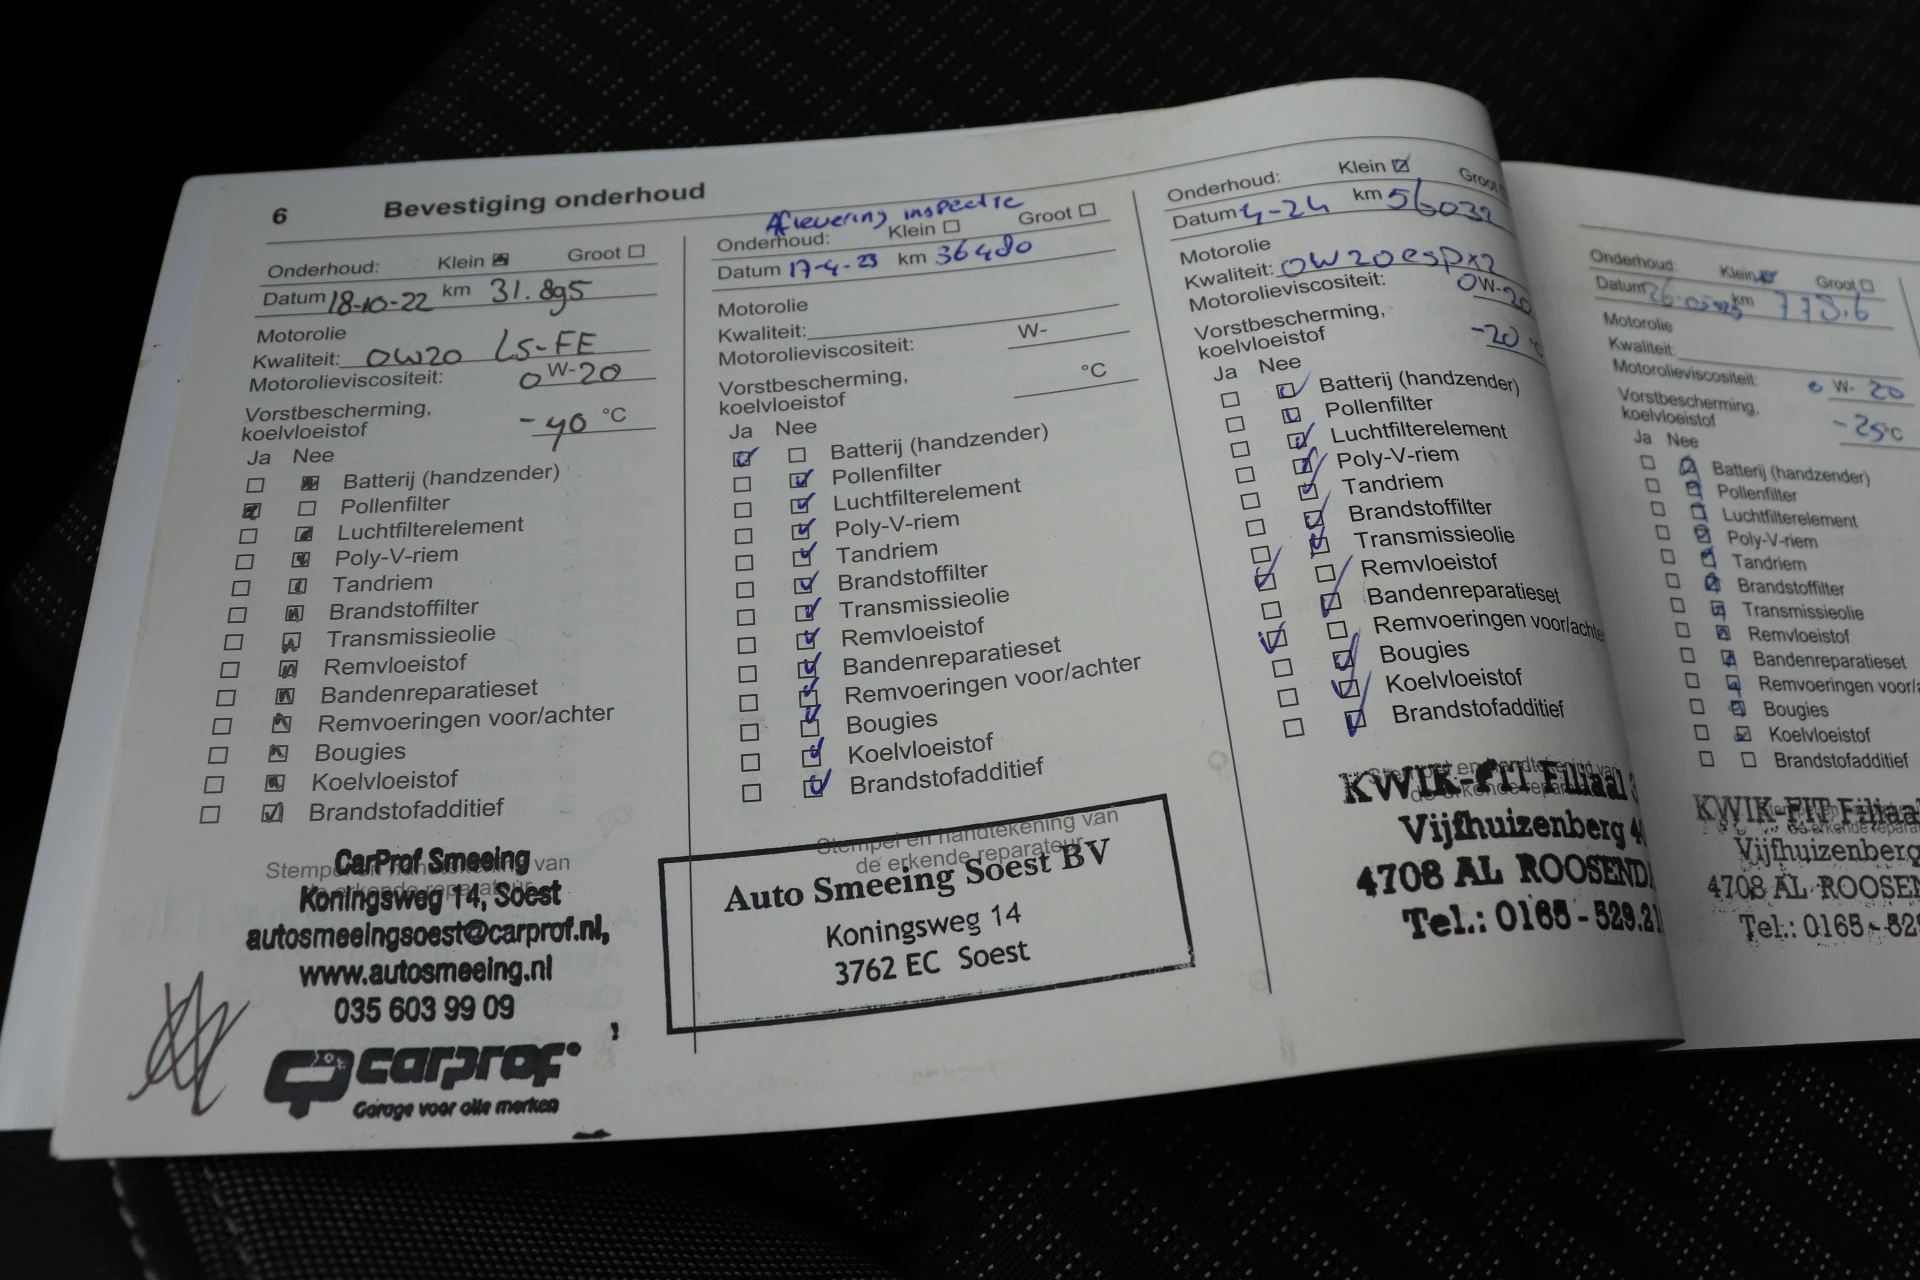 6 Bevestiging onderhoud
Aflevering inspectie
Onderhoud: Klein Groot
Datum 18-10-22 km 31.895
Motorolie
Kwaliteit: 0W20 LS-FE
Motorolieviscositeit: 0 W- 20
Vorstbescherming,
koelvloeistof -40 °C
Ja Nee
Batterij (handzender)
Pollenfilter
Luchtfilterelement
Poly-V-riem
Tandriem
Brandstoffilter
Transmissieolie
Remvloeistof
Bandenreparatieset
Remvoeringen voor/achter
Bougies
Koelvloeistof
Brandstofadditief
CarProf Smeeing
Koningsweg 14, Soest
autosmeeingsoest@carprof.nl,
www.autosmeeing.nl
035 603 99 09
carprof
Garage voor alle merken
Onderhoud: Klein Groot
Datum 17-4-23 km 36480
Motorolie
Kwaliteit:
Motorolieviscositeit: W-
Vorstbescherming,
koelvloeistof °C
Ja Nee
Batterij (handzender)
Pollenfilter
Luchtfilterelement
Poly-V-riem
Tandriem
Brandstoffilter
Transmissieolie
Remvloeistof
Bandenreparatieset
Remvoeringen voor/achter
Bougies
Koelvloeistof
Brandstofadditief
Stempel en handtekening van
de erkende reparateur
Auto Smeeing Soest BV
Koningsweg 14
3762 EC Soest
Onderhoud: Klein Groot
Datum 4-24 km 56032
Motorolie
Kwaliteit: 0W20 esp x2
Motorolieviscositeit: 0 W- 20
Vorstbescherming,
koelvloeistof -20 °C
Ja Nee
Batterij (handzender)
Pollenfilter
Luchtfilterelement
Poly-V-riem
Tandriem
Brandstoffilter
Transmissieolie
Remvloeistof
Bandenreparatieset
Remvoeringen voor/achte
Bougies
Koelvloeistof
Brandstofadditief
KWIK-FIT Filiaal
Vijfhuizenberg
4708 AL ROOSEND
Tel.: 0165 - 529.21
Onderhoud: Klein Groot
Datum km
Motorolie
Kwaliteit:
Motorolieviscositeit: 0 W- 20
Vorstbescherming,
koelvloeistof -25 °C
Ja Nee
Batterij (handzender)
Pollenfilter
Luchtfilterelement
Poly-V-riem
Tandriem
Brandstoffilter
Transmissieolie
Remvloeistof
Bandenreparatieset
Remvoeringen voor/
Bougies
Koelvloeistof
Brandstofadditief
KWIK-FIT Filiaal
Vijfhuizenberg
4708 AL ROOSEN
Tel.: 0165 - 52